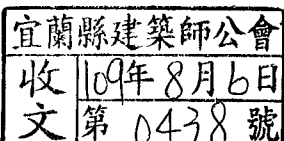 宜蘭縣建築師公會
收文
109年8月6日
第0438號